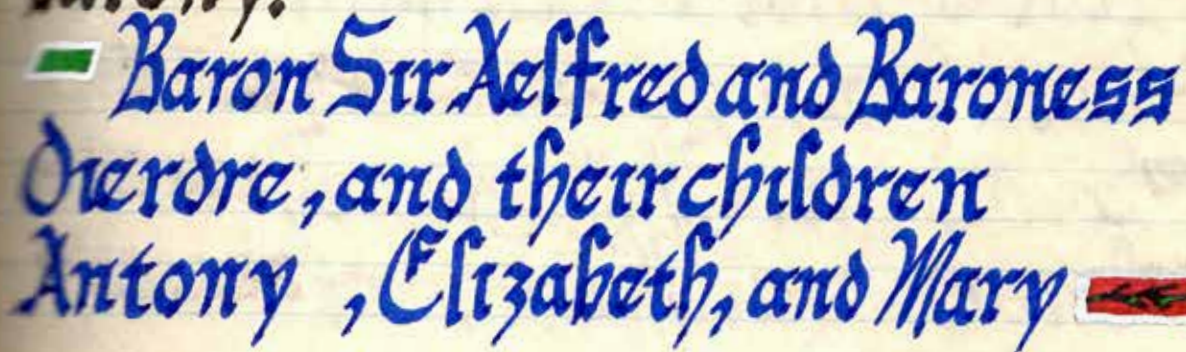 Baron Sir Aelfred and Baroness
Dierdre, and their children
Antony , Elizabeth, and Mary